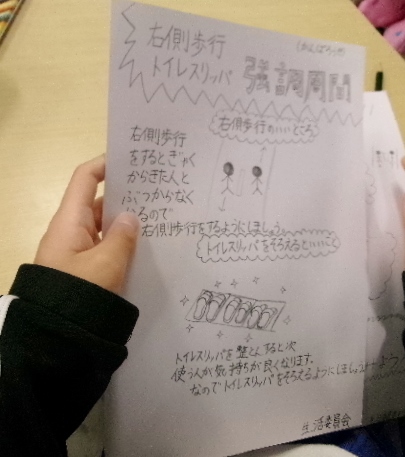 右側歩行
トイレスリッパ
強調週間
右側歩行のいいところ
右側歩行
をするとぎゃく
からきた人と
ぶつからなく
なるので
右側歩行をするようにしましょう
トイレスリッパをそろえるといいこと
トイレスリッパを整とんすると次
使う人が気持ちが良くなります。
なのでトイレスリッパをそろえるようにしましょう
生活委員会